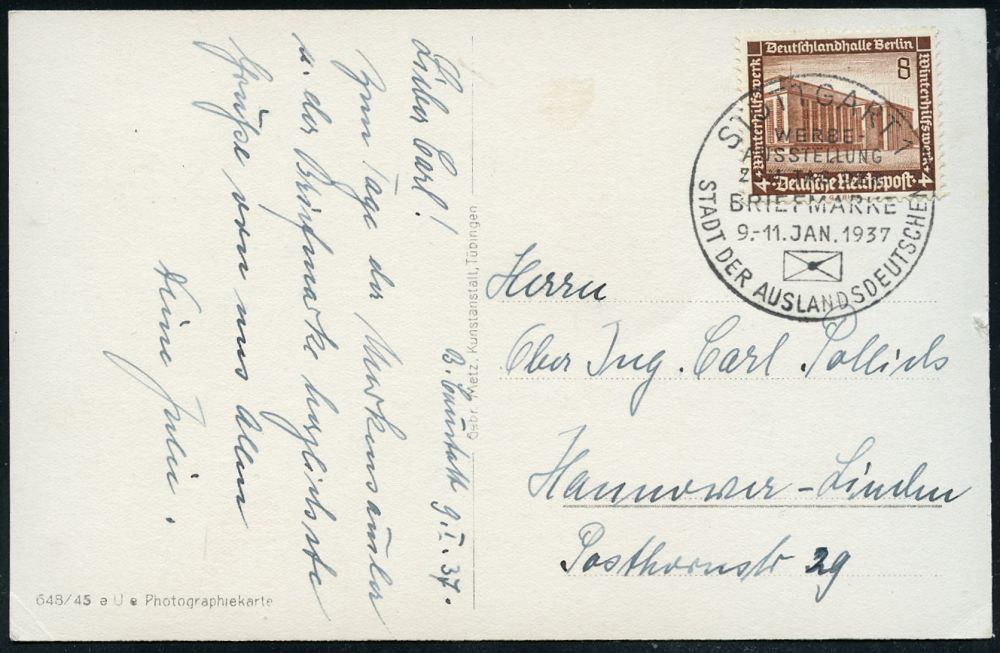 B. Cannstatt 9.I.37.
Lieber Carl!
Zum Tage der Markensammler
u. der Briefmarke herzlichste
Grüße von uns allen
Deine Julie.
Gebr. Metz, Kunstanstalt, Tübingen
648/45 e U e Photographiekarte
Deutschlandhalle Berlin
8
Winterhilfswerk
Winterhilfswerk
4 Deutsche Reichspost 4
STUTTGART 1
WERBE-
AUSSTELLUNG
ZUM TAG DER
BRIEFMARKE
9.-11. JAN. 1937
STADT DER AUSLANDSDEUTSCHEN
Herrn
Ober Ing. Carl
Hannover-Linden
Posthornstr 29